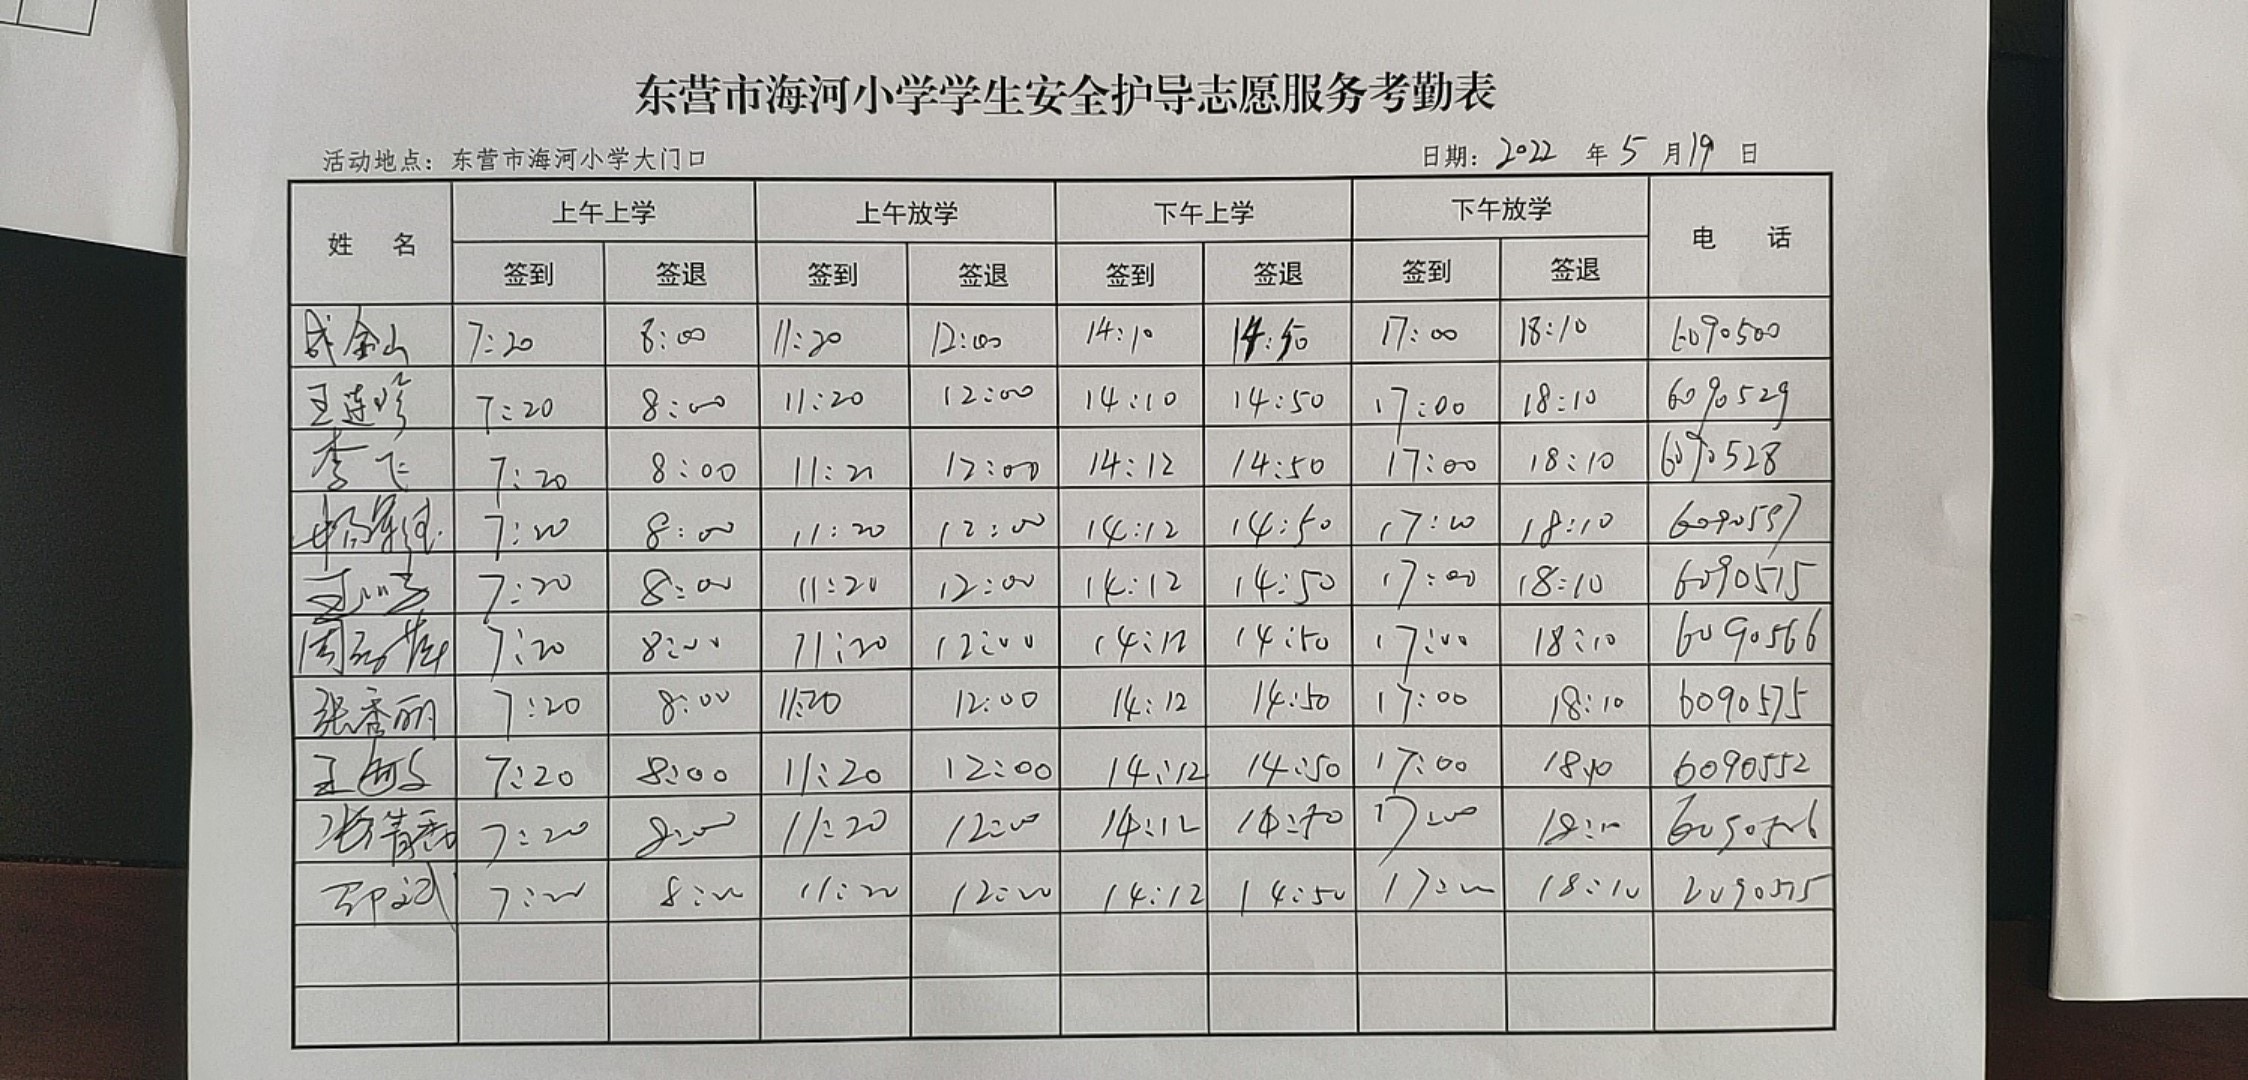 东营市海河小学学生安全护导志愿服务考勤表
活动地点：东营市海河小学大门口 日期：2022 年 5 月 19 日
姓 名 上午上学 上午放学 下午上学 下午放学 电 话
签到 签退 签到 签退 签到 签退 签到 签退
成金山 7:20 8:00 11:20 12:00 14:10 14:50 17:00 18:10 6090500
王连珍 7:20 8:00 11:20 12:00 14:10 14:50 17:00 18:10 6090529
李飞 7:20 8:00 11:20 12:00 14:12 14:50 17:00 18:10 6090528
7:20 8:00 11:20 12:00 14:12 14:50 17:00 18:10 6090597
7:20 8:00 11:20 12:00 14:12 14:50 17:00 18:10 6090515
7:20 8:00 11:20 12:00 14:12 14:50 17:00 18:10 6090566
张秀丽 7:20 8:00 11:20 12:00 14:12 14:50 17:00 18:10 6090575
7:20 8:00 11:20 12:00 14:12 14:50 17:00 18:10 6090552
张青香 7:20 8:00 11:20 12:00 14:12 14:50 17:00 18:10
7:20 8:00 11:20 12:00 14:12 14:50 17:00 18:10